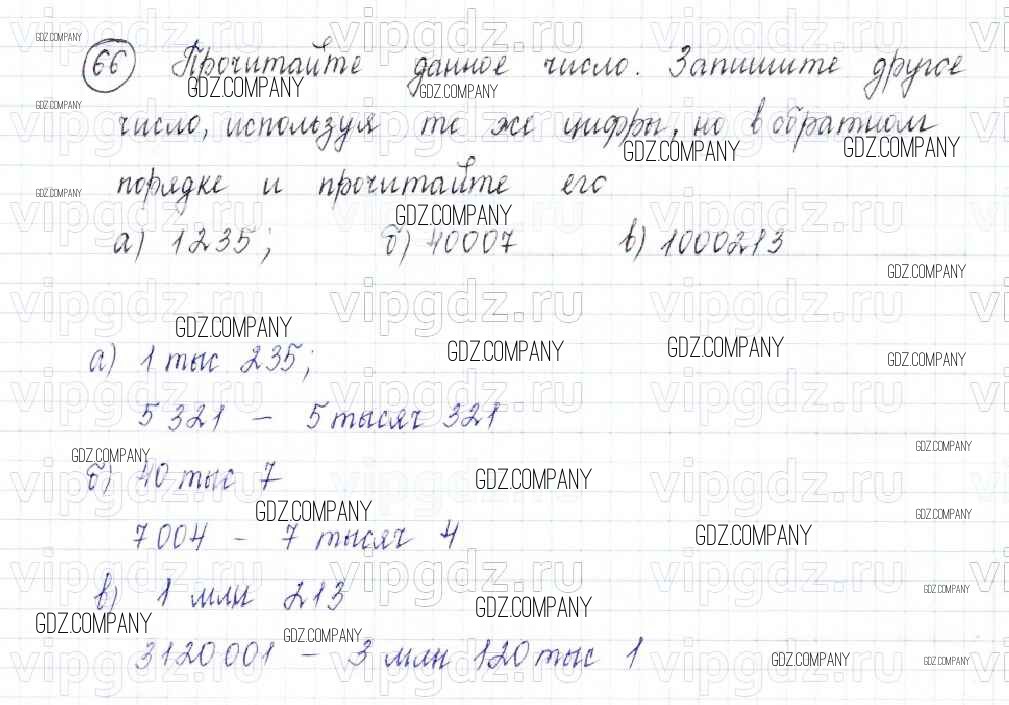 66 Прочитайте данное число. Запишите другое
число, используя те же цифры, но в обратном
порядке и прочитайте его
а) 1235; б) 40007 в) 1000213
а) 1 тыс 235;
5 321 – 5 тысяч 321
б) 40 тыс 7
7 004 – 7 тысяч 4
в) 1 млн 213
3120 001 – 3 млн 120 тыс 1
GDZ.COMPANY
vipgdz.ru